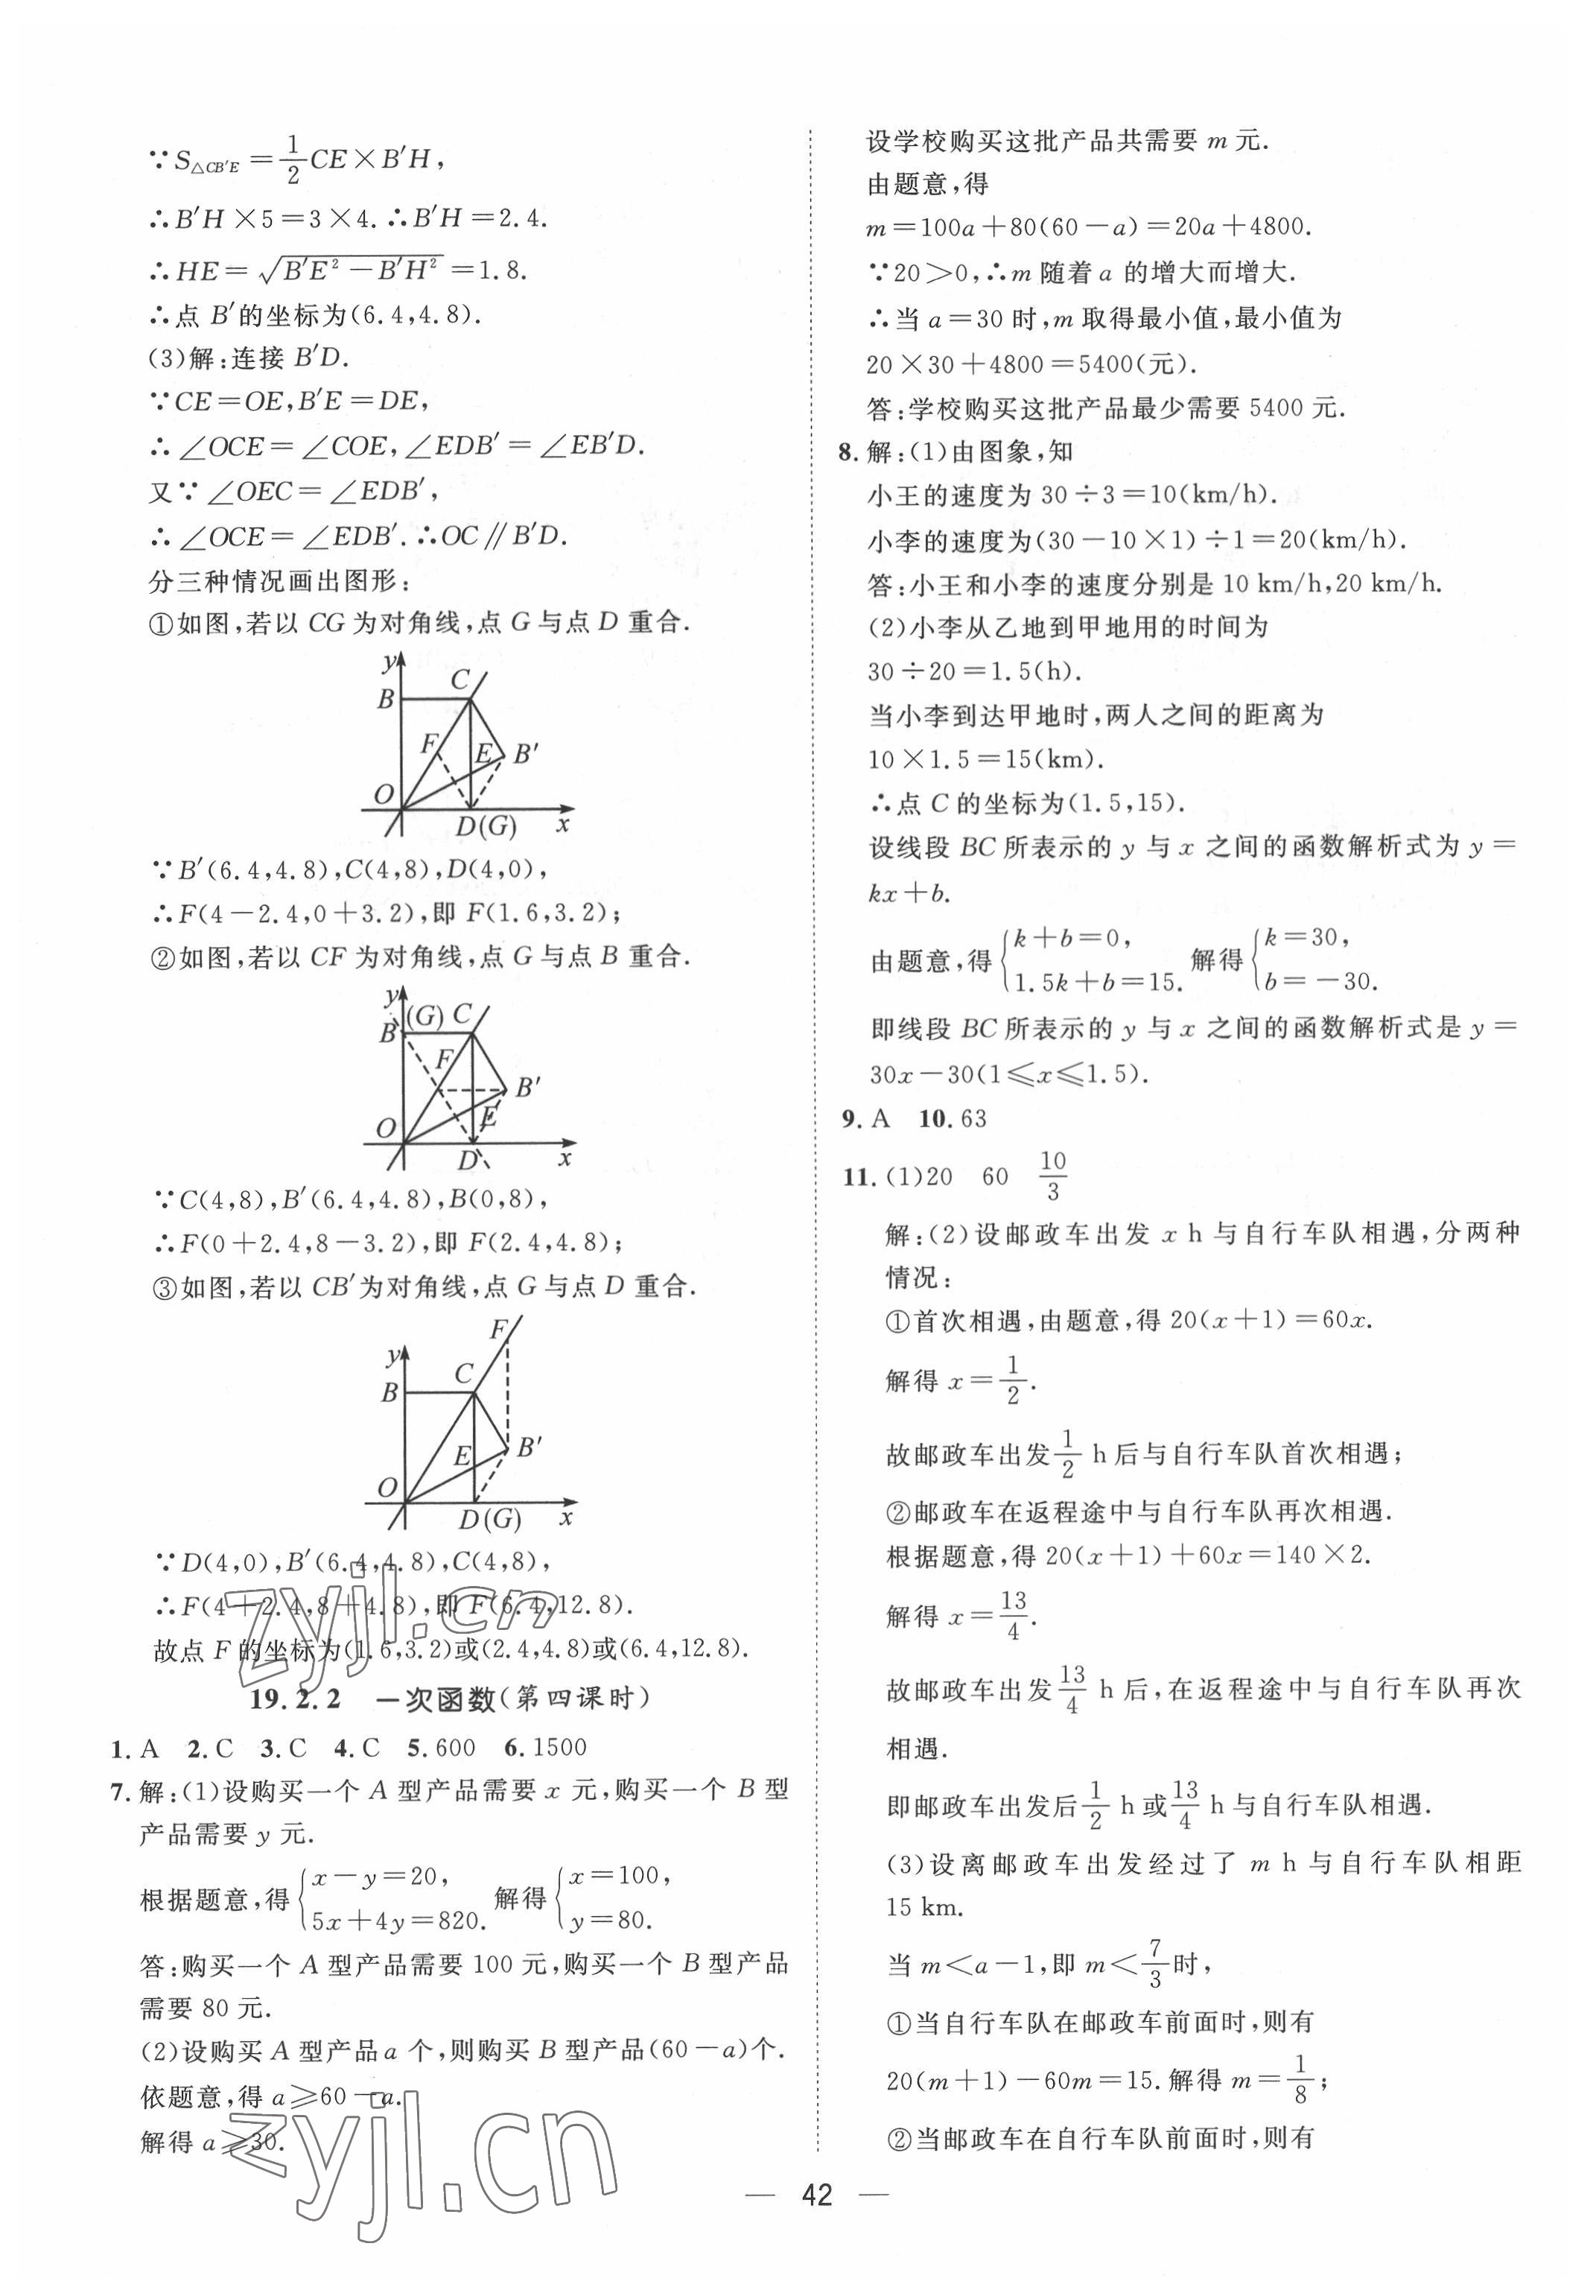 ∵S△CB′E＝1/2CE×B′H，
∴B′H×5＝3×4．∴B′H＝2.4．
∴HE＝√(B′E²－B′H²)＝1.8．
∴点 B′的坐标为(6.4,4.8)．
(3)解：连接 B′D．
∵CE＝OE，B′E＝DE，
∴∠OCE＝∠COE，∠EDB′＝∠EB′D．
又∵∠OEC＝∠EDB′，
∴∠OCE＝∠EDB′．∴OC∥B′D．
分三种情况画出图形：
①如图，若以 CG 为对角线，点 G 与点 D 重合．
y
C
B
F
E
B′
O
D(G)
x
∵B′(6.4,4.8)，C(4,8)，D(4,0)，
∴F(4－2.4,0＋3.2)，即 F(1.6,3.2)；
②如图，若以 CF 为对角线，点 G 与点 B 重合．
y
(G)
C
B
F
B′
E
O
D
x
∵C(4,8)，B′(6.4,4.8)，B(0,8)，
∴F(0＋2.4,8－3.2)，即 F(2.4,4.8)；
③如图，若以 CB′为对角线，点 G 与点 D 重合．
F
y
C
B
E
B′
O
D(G)
x
∵D(4,0)，B′(6.4,4.8)，C(4,8)，
∴F(4＋2.4,8＋4.8)，即 F(6.4,12.8)．
故点 F 的坐标为(1.6,3.2)或(2.4,4.8)或(6.4,12.8)．
19.2.2 一次函数(第四课时)
1. A 2. C 3. C 4. C 5. 600 6. 1500
7. 解：(1)设购买一个 A 型产品需要 x 元，购买一个 B 型
产品需要 y 元．
根据题意，得{x－y＝20，5x＋4y＝820． 解得{x＝100，y＝80．
答：购买一个 A 型产品需要 100 元，购买一个 B 型产品
需要 80 元．
(2)设购买 A 型产品 a 个，则购买 B 型产品(60－a)个．
依题意，得 a≥60－a．
解得 a≥30．
设学校购买这批产品共需要 m 元．
由题意，得
m＝100a＋80(60－a)＝20a＋4800．
∵20＞0，∴m 随着 a 的增大而增大．
∴当 a＝30 时，m 取得最小值，最小值为
20×30＋4800＝5400(元)．
答：学校购买这批产品最少需要 5400 元．
8. 解：(1)由图象，知
小王的速度为 30÷3＝10(km/h)．
小李的速度为(30－10×1)÷1＝20(km/h)．
答：小王和小李的速度分别是 10 km/h，20 km/h．
(2)小李从乙地到甲地用的时间为
30÷20＝1.5(h)．
当小李到达甲地时，两人之间的距离为
10×1.5＝15(km)．
∴点 C 的坐标为(1.5,15)．
设线段 BC 所表示的 y 与 x 之间的函数解析式为 y＝
kx＋b．
由题意，得{k＋b＝0，1.5k＋b＝15． 解得{k＝30，b＝－30．
即线段 BC 所表示的 y 与 x 之间的函数解析式是 y＝
30x－30(1≤x≤1.5)．
9. A 10. 63
11. (1)20 60 10/3
解：(2)设邮政车出发 x h 与自行车队相遇，分两种
情况：
①首次相遇，由题意，得 20(x＋1)＝60x．
解得 x＝1/2．
故邮政车出发1/2 h 后与自行车队首次相遇；
②邮政车在返程途中与自行车队再次相遇．
根据题意，得 20(x＋1)＋60x＝140×2．
解得 x＝13/4．
故邮政车出发13/4 h 后，在返程途中与自行车队再次
相遇．
即邮政车出发后1/2 h 或13/4 h 与自行车队相遇．
(3)设离邮政车出发经过了 m h 与自行车队相距
15 km．
当 m＜a－1，即 m＜7/3时，
①当自行车队在邮政车前面时，则有
20(m＋1)－60m＝15．解得 m＝1/8；
②当邮政车在自行车队前面时，则有
zyjl.cn
zyjl.cn
— 42 —